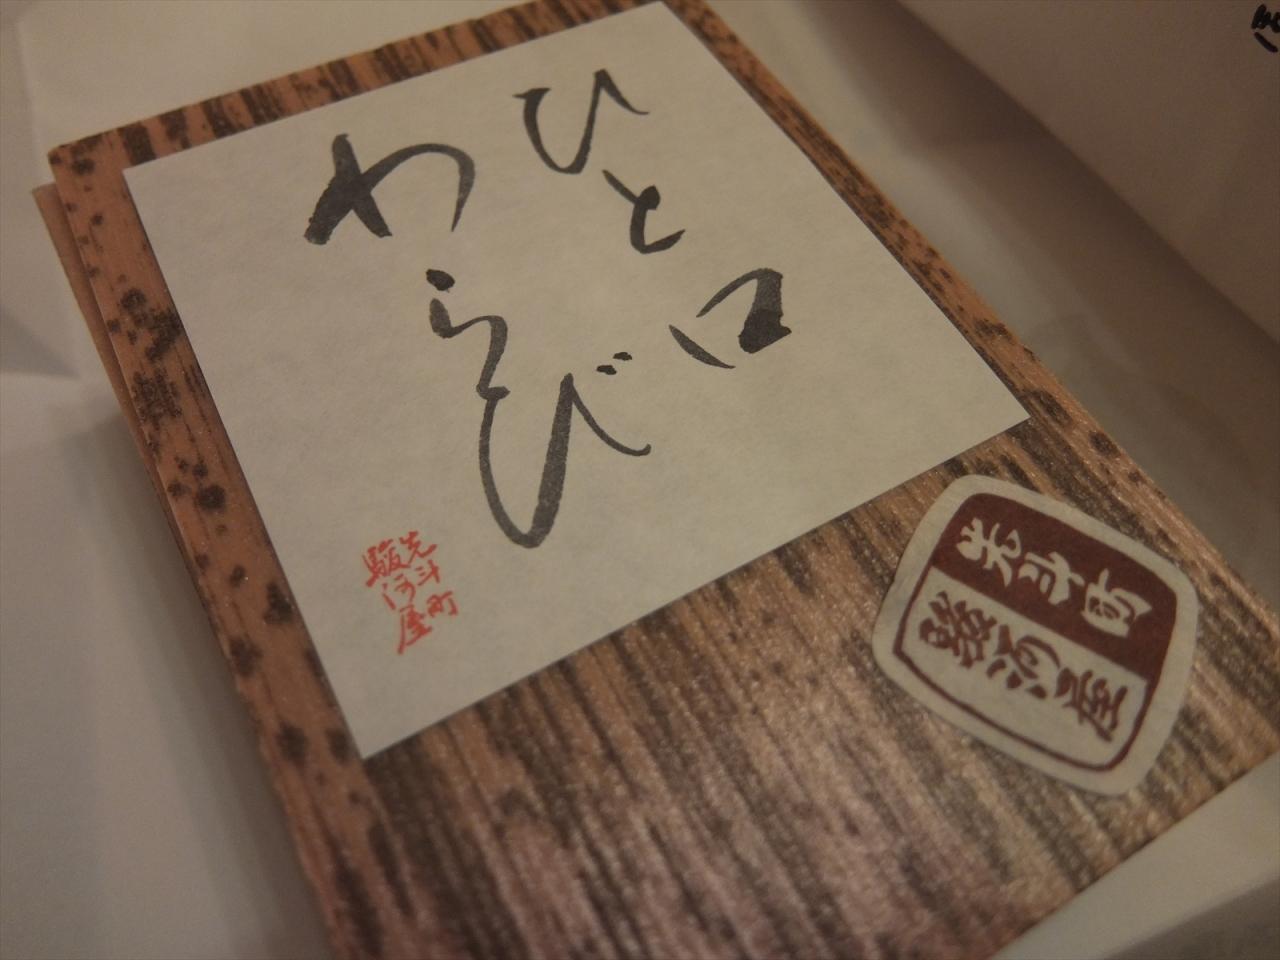 ひと口
わらび
先斗町
駿河屋
先斗町
駿河屋